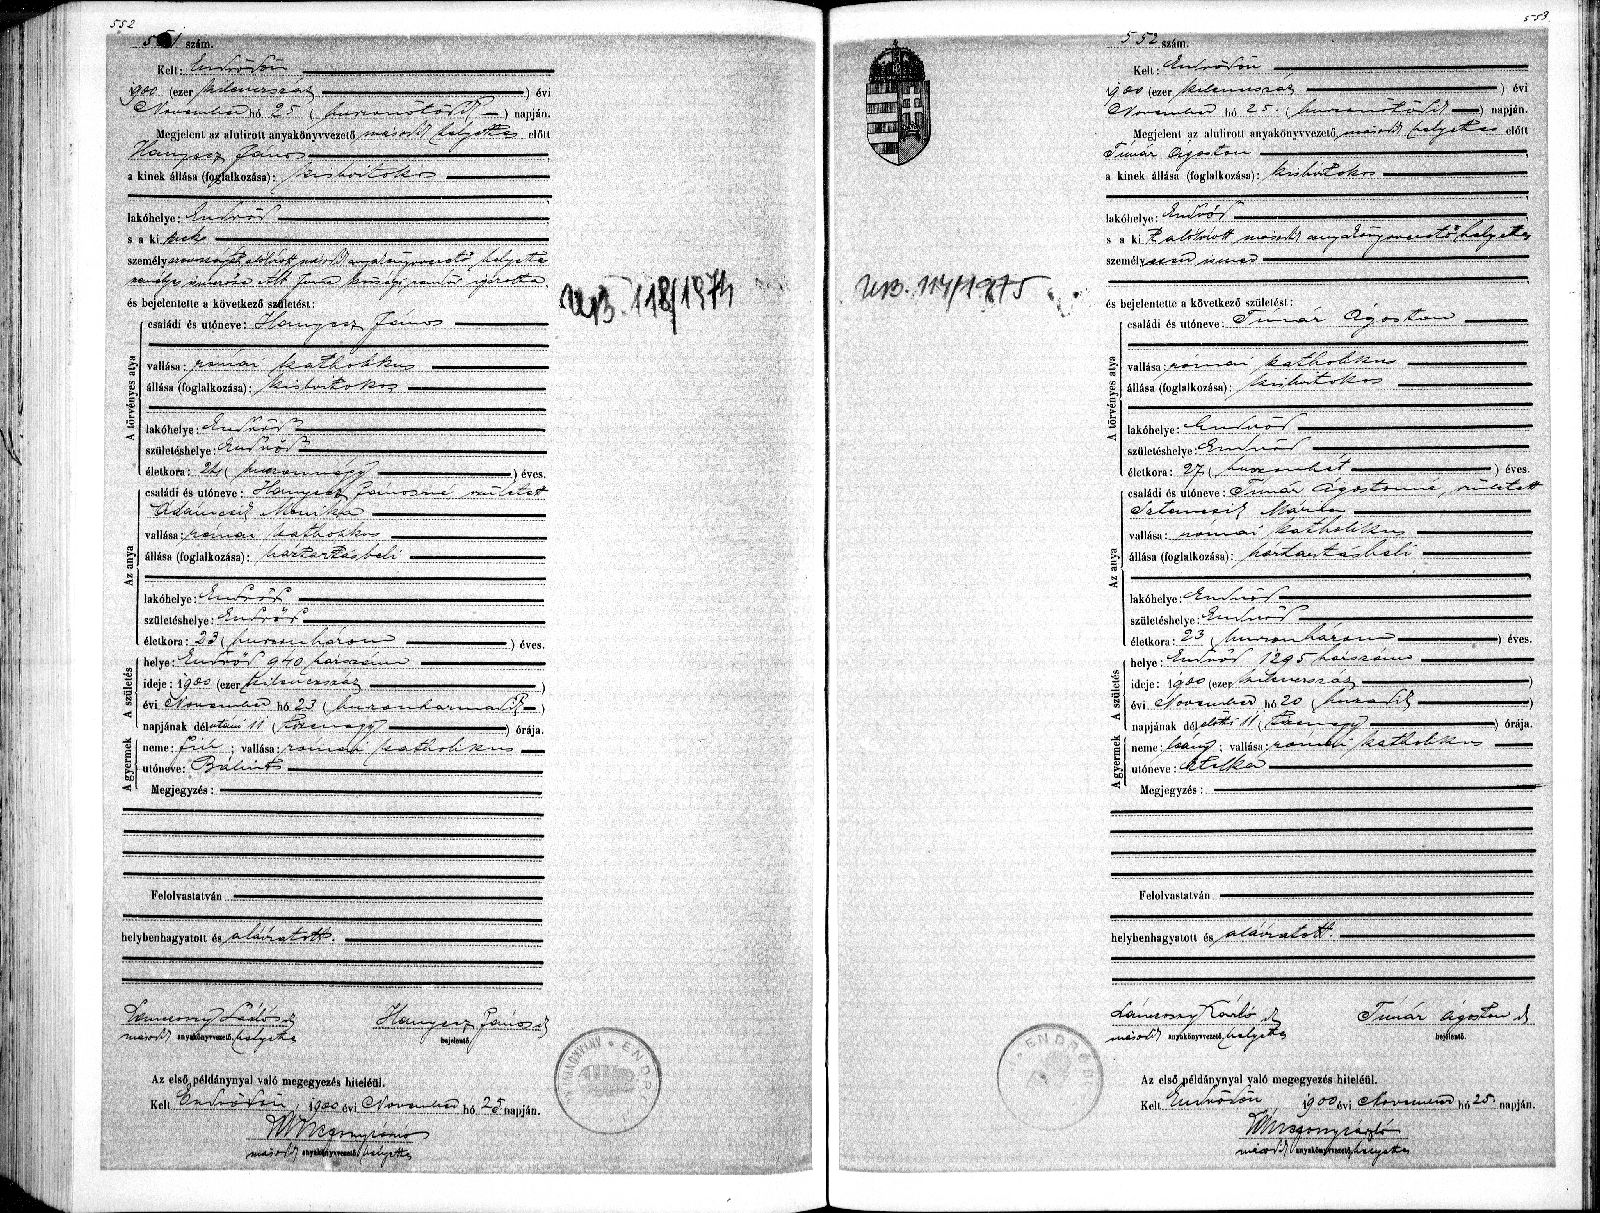 552
551 szám.
Kelt: Endrődön
1900 (ezer kilencszáz) évi
November hó 25 (huszonötödik) napján.
Megjelent az alulirott anyakönyvvezető másodk helyettes előtt
Hanyecz János
a kinek állása (foglalkozása): kisbirtokos
lakóhelye: Endrőd
s a ki nek
személyazonosságát alólirott másodk anyakönyvvezető helyettes
és bejelentette a következő születést:
A törvényes atya
családi és utóneve: Hanyecz János
vallása: római katholikus
állása (foglalkozása): kisbirtokos
lakóhelye: Endrőd
születéshelye: Endrőd
életkora: 24 (huszonnégy) éves.
Az anya
családi és utóneve: Hanyecz Jánosné született
Adamcsik Mónika
vallása: római katholikus
állása (foglalkozása): háztartásbeli
lakóhelye: Endrőd
születéshelye: Endrőd
életkora: 23 (huszonhárom) éves.
A születés
helye: Endrőd 940 házszám
ideje: 1900 (ezer kilencszáz)
évi November hó 23 (huszonharmadik)
napjának délutáni 11 (tizenegy) órája.
A gyermek
neme: fiú; vallása: római katholikus
utóneve: Bálint
Megjegyzés:
Felolvastatván
helybenhagyatott és aláiratott.
Hanyecz János
másodk anyakönyvvezető helyettes
bejelentő.
Az első példánynyal való megegyezés hiteléül.
Kelt Endrődön, 1900 évi November hó 25 napján.
másodk anyakönyvvezető helyettes
118/1974
553
552 szám.
Kelt: Endrődön
1900 (ezer kilencszáz) évi
November hó 25 (huszonötödik) napján.
Megjelent az alulirott anyakönyvvezető másodk helyettes előtt
Timár Ágoston
a kinek állása (foglalkozása): kisbirtokos
lakóhelye: Endrőd
s a kit alólirott másodk anyakönyvvezető helyettes
személyesen ismer
és bejelentette a következő születést:
A törvényes atya
családi és utóneve: Timár Ágoston
vallása: római katholikus
állása (foglalkozása): kisbirtokos
lakóhelye: Endrőd
születéshelye: Endrőd
életkora: 27 (huszonhét) éves.
Az anya
családi és utóneve: Timár Ágostonné, született
Mária
vallása: római katholikus
állása (foglalkozása): háztartásbeli
lakóhelye: Endrőd
születéshelye: Endrőd
életkora: 23 (huszonhárom) éves.
A születés
helye: Endrőd 1295 házszám
ideje: 1900 (ezer kilencszáz)
évi November hó 20 (huszadik)
napjának délelőtti 11 (tizenegy) órája.
A gyermek
neme: leány; vallása: római katholikus
utóneve: Etelka
Megjegyzés:
Felolvastatván
helybenhagyatott és aláiratott.
Timár Ágoston
másodk anyakönyvvezető helyettes
bejelentő.
Az első példánynyal való megegyezés hiteléül.
Kelt Endrődön 1900 évi November hó 25 napján.
másodk anyakönyvvezető helyettes